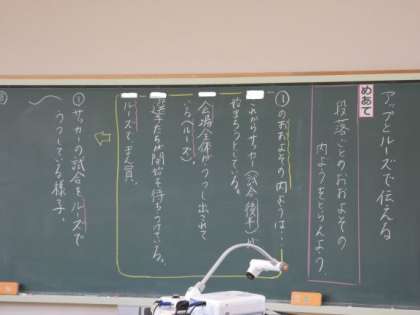 アップとルーズで伝える
めあて
段落ごとのおおよその
内ようをとらえよう。
①のおおよその内ようは…
からサッカー
始まろうとしている。
会場全体がうつし出されて
いる(ルーズ)。
選手たちが開始を待ちうけている。
ルーズで
①サッカーの試合をルーズで
うつしている様子。